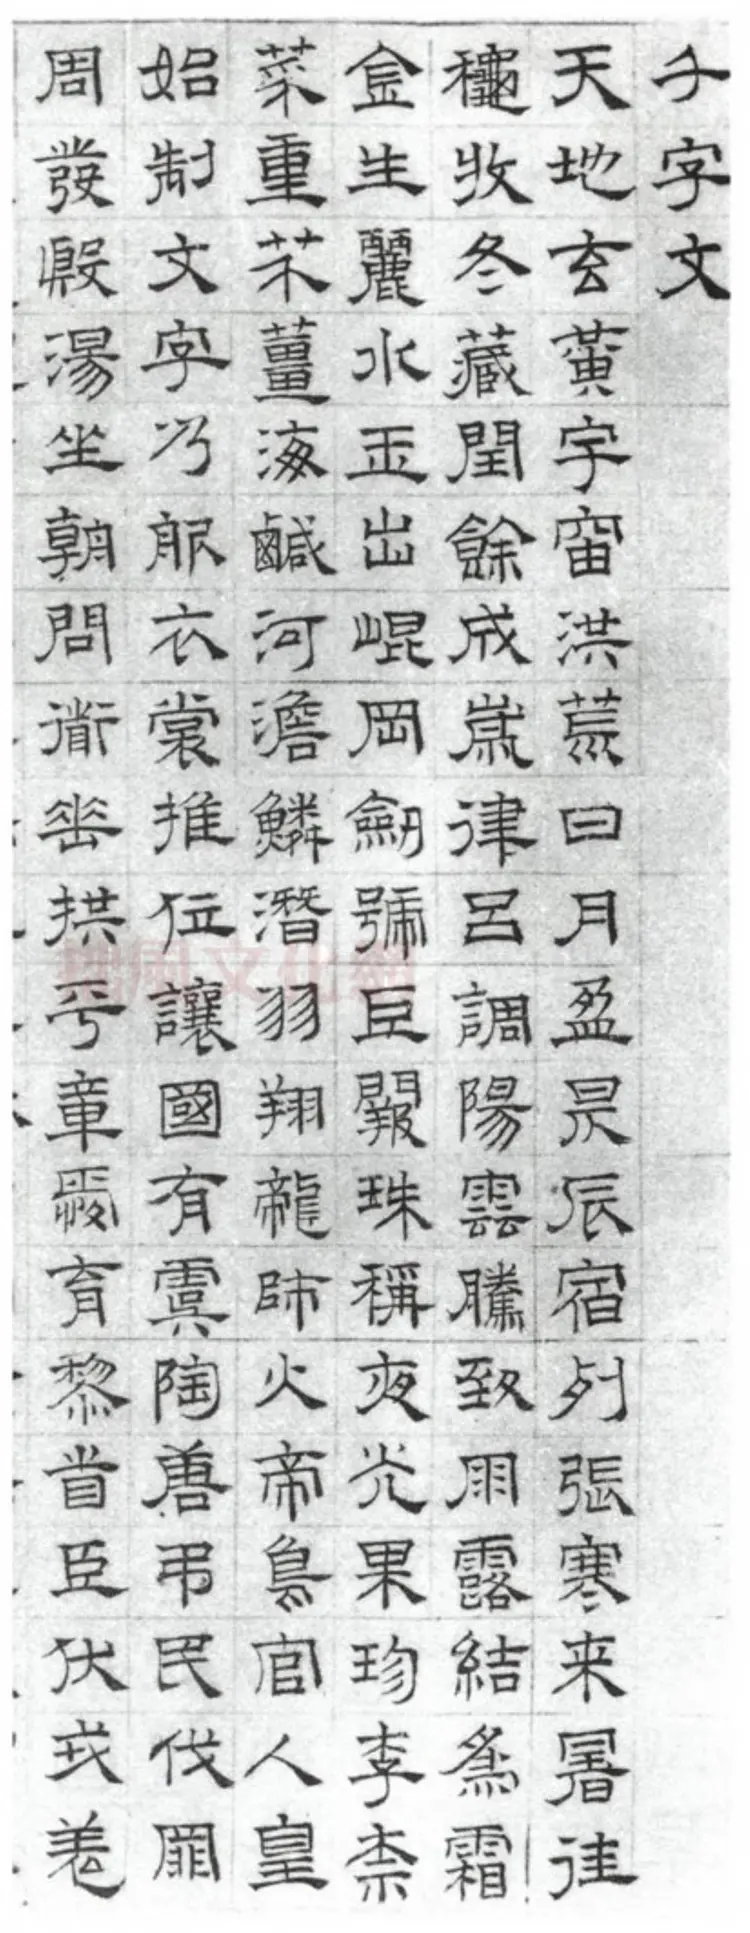 千字文
天地玄黃宇宙洪荒日月盈昃辰宿列張寒来暑往
龝收冬藏閏餘成歲律呂調陽雲騰致雨露結為霜
金生麗水玉出崐岡劍號巨闕珠稱夜光果珍李柰
菜重芥薑海鹹河澹鱗潛羽翔龍師火帝鳥官人皇
始制文字乃服衣裳推位讓國有虞陶唐弔民伐罪
周發殷湯坐朝問道垂拱平章愛育黎首臣伏戎羌